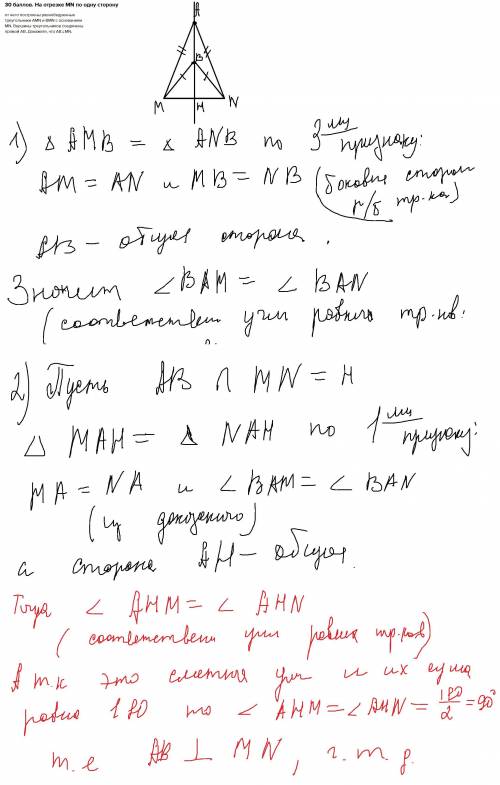 30 баллов. На отрезке MN по одну сторону
от него построены равнобедренные
треугольники AMN и BMN с основанием
MN. Вершины треугольников соединены
прямой AB. Докажите, что AB⊥MN.
A
B
M H N
1) △ AMB = △ ANB по 3му признаку:
AM = AN и MB = NB (боковые стороны
р/б тр-ка)
AB – общая сторона.
Значит ∠BAM = ∠BAN
(соответствен углы равных тр-ков.
2) Пусть AB ∩ MN = H
△ MAH = △ NAH по 1му признаку:
MA = NA и ∠BAM = ∠BAN
(из доказанного)
а сторона AH – общая.
Тогда ∠ AHM = ∠ AHN
(соответствен углы равных тр-ков)
А т.к это смежные углы и их сумма
равна 180 то ∠ AHM = ∠AHN = 180/2 = 90°
т.е AB ⊥ MN, ч.т.д.